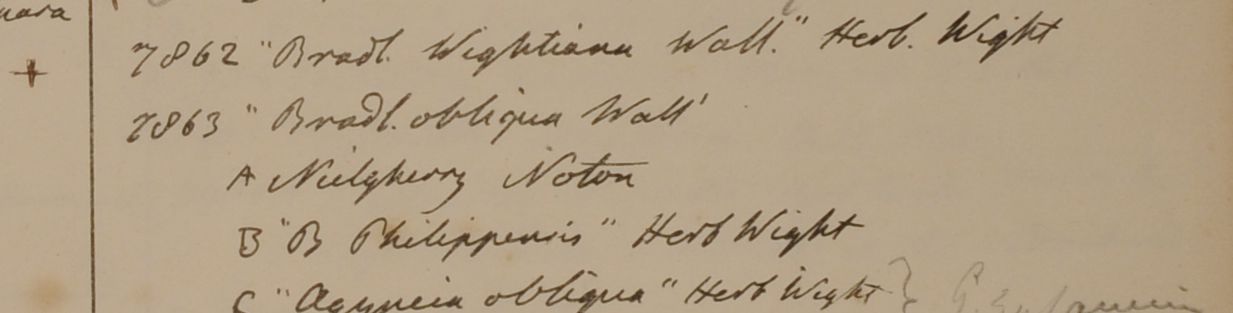 7862 "Bradl. Wightiana Wall." Herb. Wight
7863 "Bradl. obliqua Wall'
A Nielgherry Noton
B "B Philippensis" Herb Wight
C "Agyneia obliqua" Herb Wight }